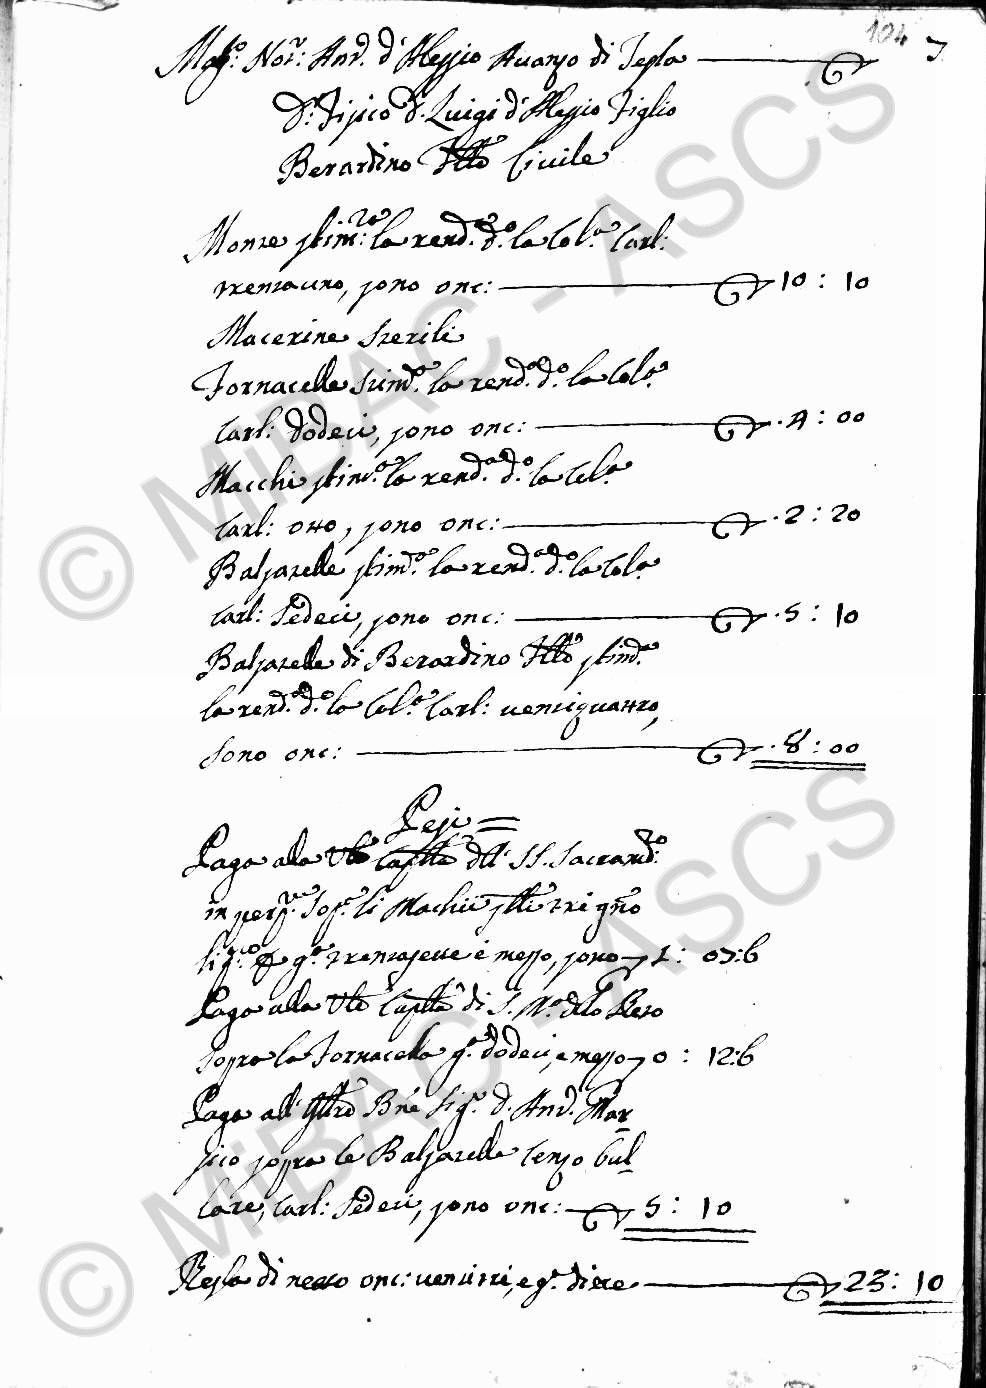 104
Mag.co Not.r: And.a d'Alessio Avanzo di Testa 7
D.r Fisico d. Luigi d'Alessio Figlio
Berardino Fllo Civile
Monte stim: ta la rend.a d.o la Col.a Carl:
trentauno, sono onc: 10 : 10
Macerine sterili
Fornacelle stimd.a la rend.a d.o la Col.a
Carl: dodeci, sono onc: 4 : 00
Macchi stim.o la rend.a d.o la Col.a
Carl: otto, sono onc: 2 : 20
Balsarelle stimd.o la rend.a d.o la Col.a
Carl: sedeci, sono onc: 5 : 10
Balsarelle di Berardino stimd.e
la rend.a d.o la Col.a Carl: ventiquattro,
sono onc: 8 : 00
Pesi
Paga alla Capplla dll SS. Sacramd.to
in sop.a li Machii
g.a trentasette e mezzo, sono 1 : 07:6
Paga alla Cappll.a di S. M.a dllo Reto
sopra la Fornacella g.a dodeci, e mezzo 0 : 12:6
Paga all' Bne Sig.r d. And.a Mar
sio sopra le Balsarelle Cenzo bul
lare, Carl: sedeci, sono onc: 5 : 10
Resta di netto onc: ventitri, e g.a diece 23 : 10
© MiBAC - ASCS
© MiBAC - ASCS